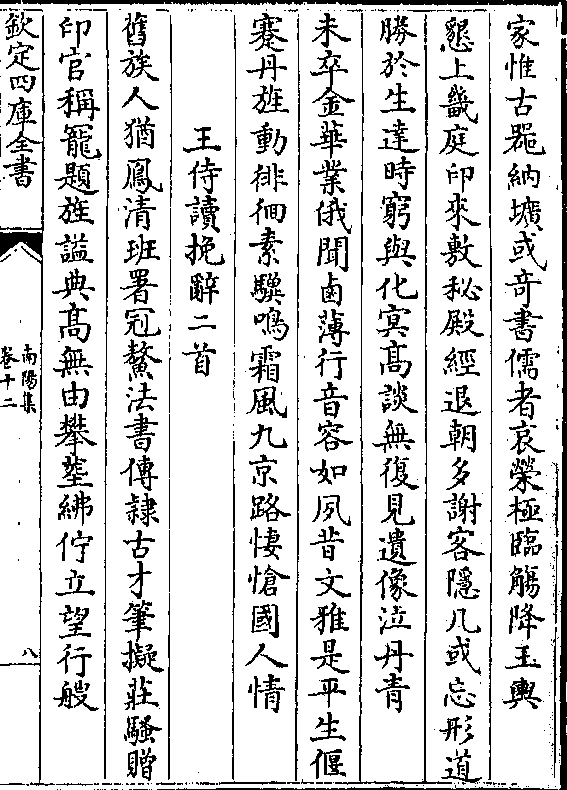 家惟古器納壙或奇書儒者哀榮極臨觴降玉輿
懇上畿庭印來敷秘殿經退朝多謝客隱几或忘形道
勝於生達時窮與化冥髙談無復見遺像泣丹青
未卒金華業俄聞鹵薄行音容如夙昔文雅是平生偃
蹇丹旌動徘徊素驥鳴霜風九京路悽愴國人情
王侍讀挽辭二首
舊族人猶鳳清班署冠鰲法書傳隷古才筆擬莊騷贈
印官稱寵題旌諡典髙無由攀塋紼佇立望行艘
欽定四庫全書
南陽集
卷十二
八